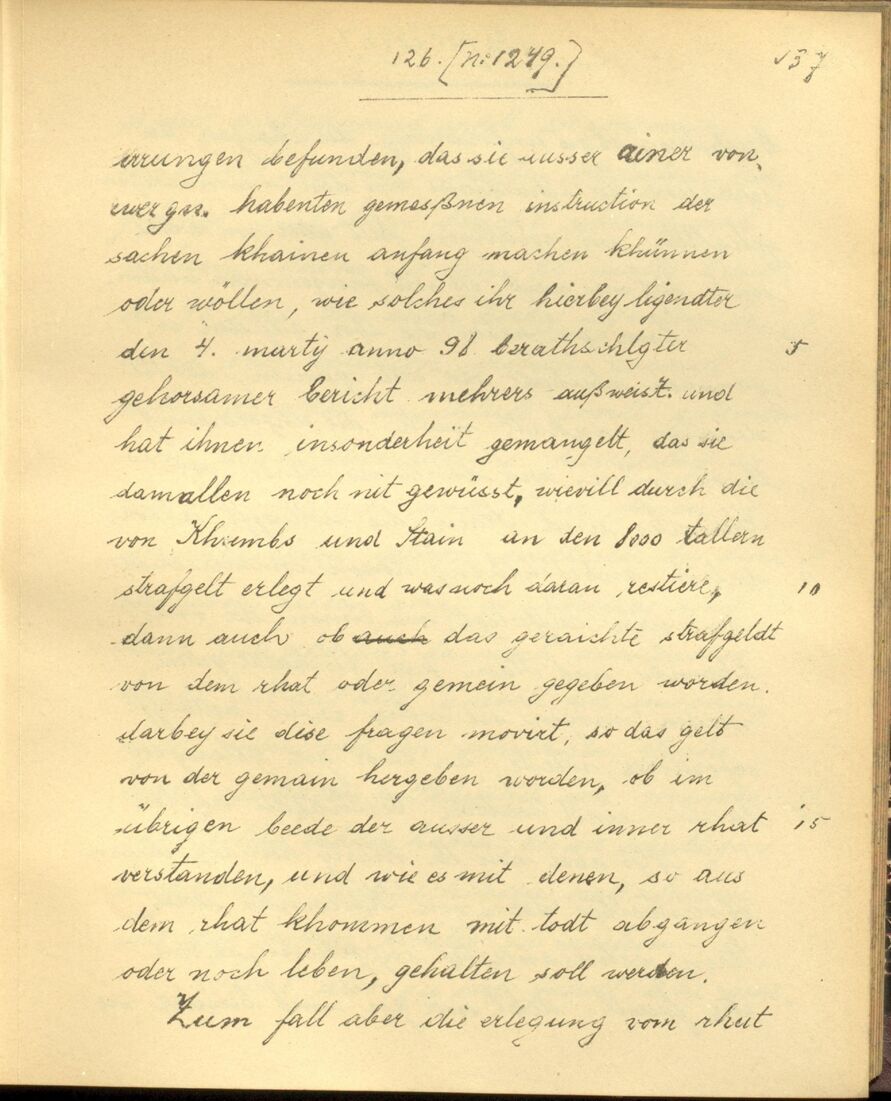 126. [No 1249.] 137
irrungen befunden, das sie ausser ainer von
euer gn. habenten gemesßnen instruction der
sachen khainen anfang machen khünnen
oder wöllen, wie solches ihr hierbey ligendter
den 4. martÿ anno 98 berathschlgter 5
gehorsamer bericht mehrers außweist. und
hat ihnen insonderheit gemangelt, das sie
damallen noch nit gewüsst, wievill durch die
von Khrembs und Stain an den 8000 tallern
strafgelt erlegt und was noch daran restiere, 10
dann auch ob auch das geraichte strafgeldt
von dem rhat oder gemein gegeben worden.
darbey sie dise fragen movirt, so das gelt
von der gemain hergeben worden, ob im
übrigen beede der ausser und inner rhat 15
verstanden, und wie es mit denen, so aus
dem rhat khommen mit todt abgangen
oder noch leben, gehalten soll werden.
Zum fall aber die erlegung vom rhat